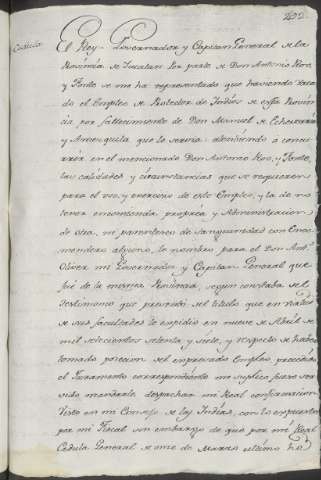 292.
Cedula.
El Rey = Governador y Capitan General de la
Provincia de Yucatan. Por parte de Don Antonio Roo,
y Fonte se me ha representado que haviendo vaca
do el Empleo de Protector de Indios de esta Provin
cia por fallecimiento de Don Manuel de Echevarria
y Amezquita que lo servia: atendiendo a concu
rrir en el mencionado Don Antonio Roo, y Fonte,
las calidades y circunstancias que se requieren
para el uso, y exercicio de este Empleo, y la de no
tener encomienda propria y Administracion
de otra, ni parentesco de sanguinidad con Enco
mendero alguno, le nombró para el Don Antº
Oliver mi Governador y Capitan General que
fué de la misma Provincia, segun constaba del
Testimonio que presentó del titulo que en virtud
de sus facultades le expidio en nueve de Abril de
mil setecientos setenta, y siete, y respecto de haber
tomado posesion del expresado Empleo precedido
el Juramento correspondiente me suplicó fuese ser
vido mandarle despachar mi Real confirmacion
Visto en mi Consejo de las Indias, con lo expuesto
por mi Fiscal sin embargo de que por mi Real
Cedula General de once de Marzo ultimo he